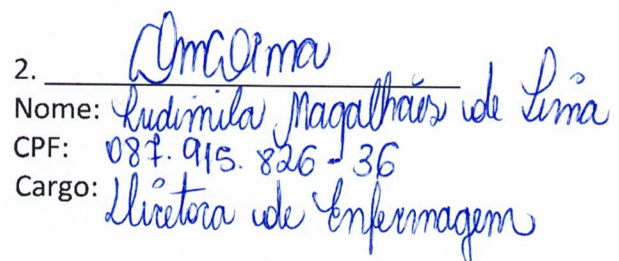 2.
Nome: Ludimila Magalhães de Lima
CPF: 087.915.826-36
Cargo: Diretora de Enfermagem